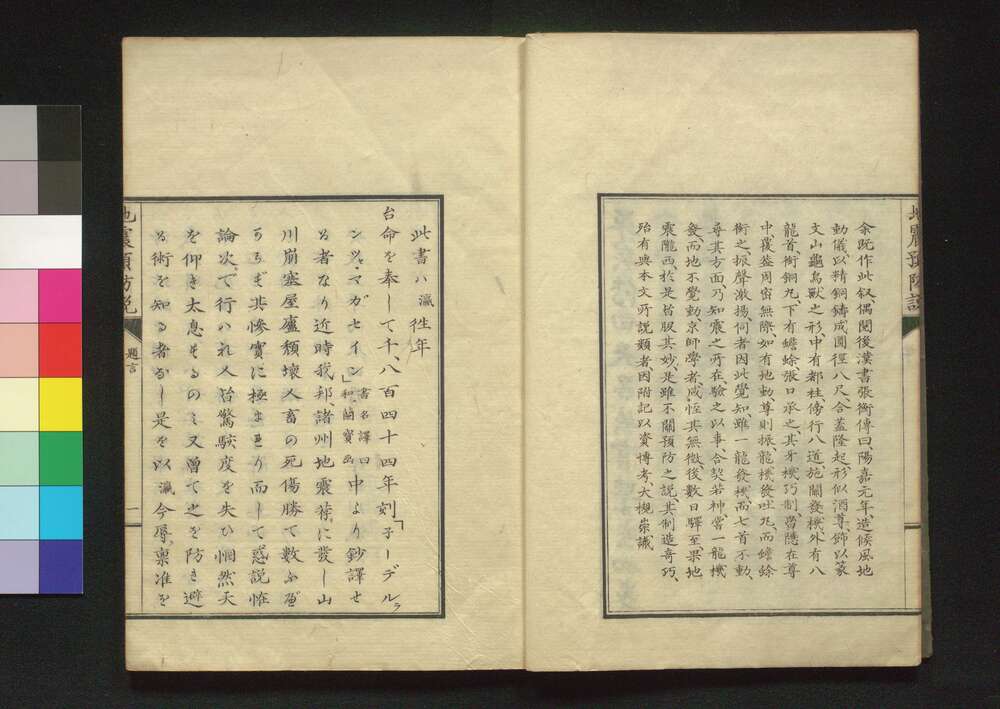 余既作此叙、偶閲後漢書張衡傳曰、陽嘉元年、造候風地
動儀、以精銅鑄成、圓徑八尺、合蓋隆起、形似酒尊、飾以篆
文山龜鳥獸之形、中有都柱、傍行八道、施關發機、外有八
龍、首銜銅丸、下有蟾蜍、張口承之、其牙機巧制、皆隱在尊
中、覆蓋周密無際、如有地動、尊則振、龍機發吐丸、而蟾蜍
銜之、振聲激揚、伺者因此覺知、雖一龍發機、而七首不動、
尋其方面、乃知震之所在、驗之以事、合契若神、嘗一龍機
發、而地不覺動、京師學者、咸怪其無徴、後數日驛至、果地
震隴西、於是皆服其妙、是雖不關預防之説、其制造奇巧、
殆有與本文所説類者、因附記以資博考、大槻崇識
地震預防説
地震預防説
題言
一
此書ハ瀛往年
台命を奉して千八百四十四年刻「子ーデルラ
ンツ、マガセイン」書名譯曰和蘭寶函中より鈔譯せ
る者なり近時我邦、諸州地震荐に發し山
川崩塞屋廬頽壊人畜の死傷勝て數ふべ
からず其惨實に極まれり而して惑説恠
論次で行ハれ人皆驚駭度を失ひ惘然天
を仰き太息するのミ又曾て之を防き避
る術を知る者なし是を以瀛今辱、禀准を